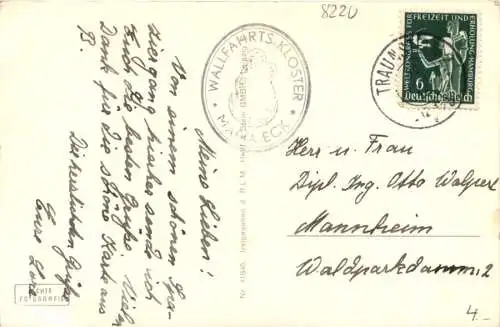 8220
WALLFAHRTS-KLOSTER
MARIA ECK
TRAUN
WELT-CONGRESS FÜR
FREIZEIT UND
ERHOLUNG-HAMBURG
6
Deutsches Reich
Meine Lieben!
Von einem schönen Spa-
ziergang hierher sende ich
Euch die besten Grüße. Vielen
Dank für die schöne Karte aus
B.
Die herzlichsten Grüße
Eure
Herr u. Frau
Dipl. Ing. Otto Walper
Mannheim
Waldparkdamm 2
ECHTE
FOTOGRAFIE
4.-